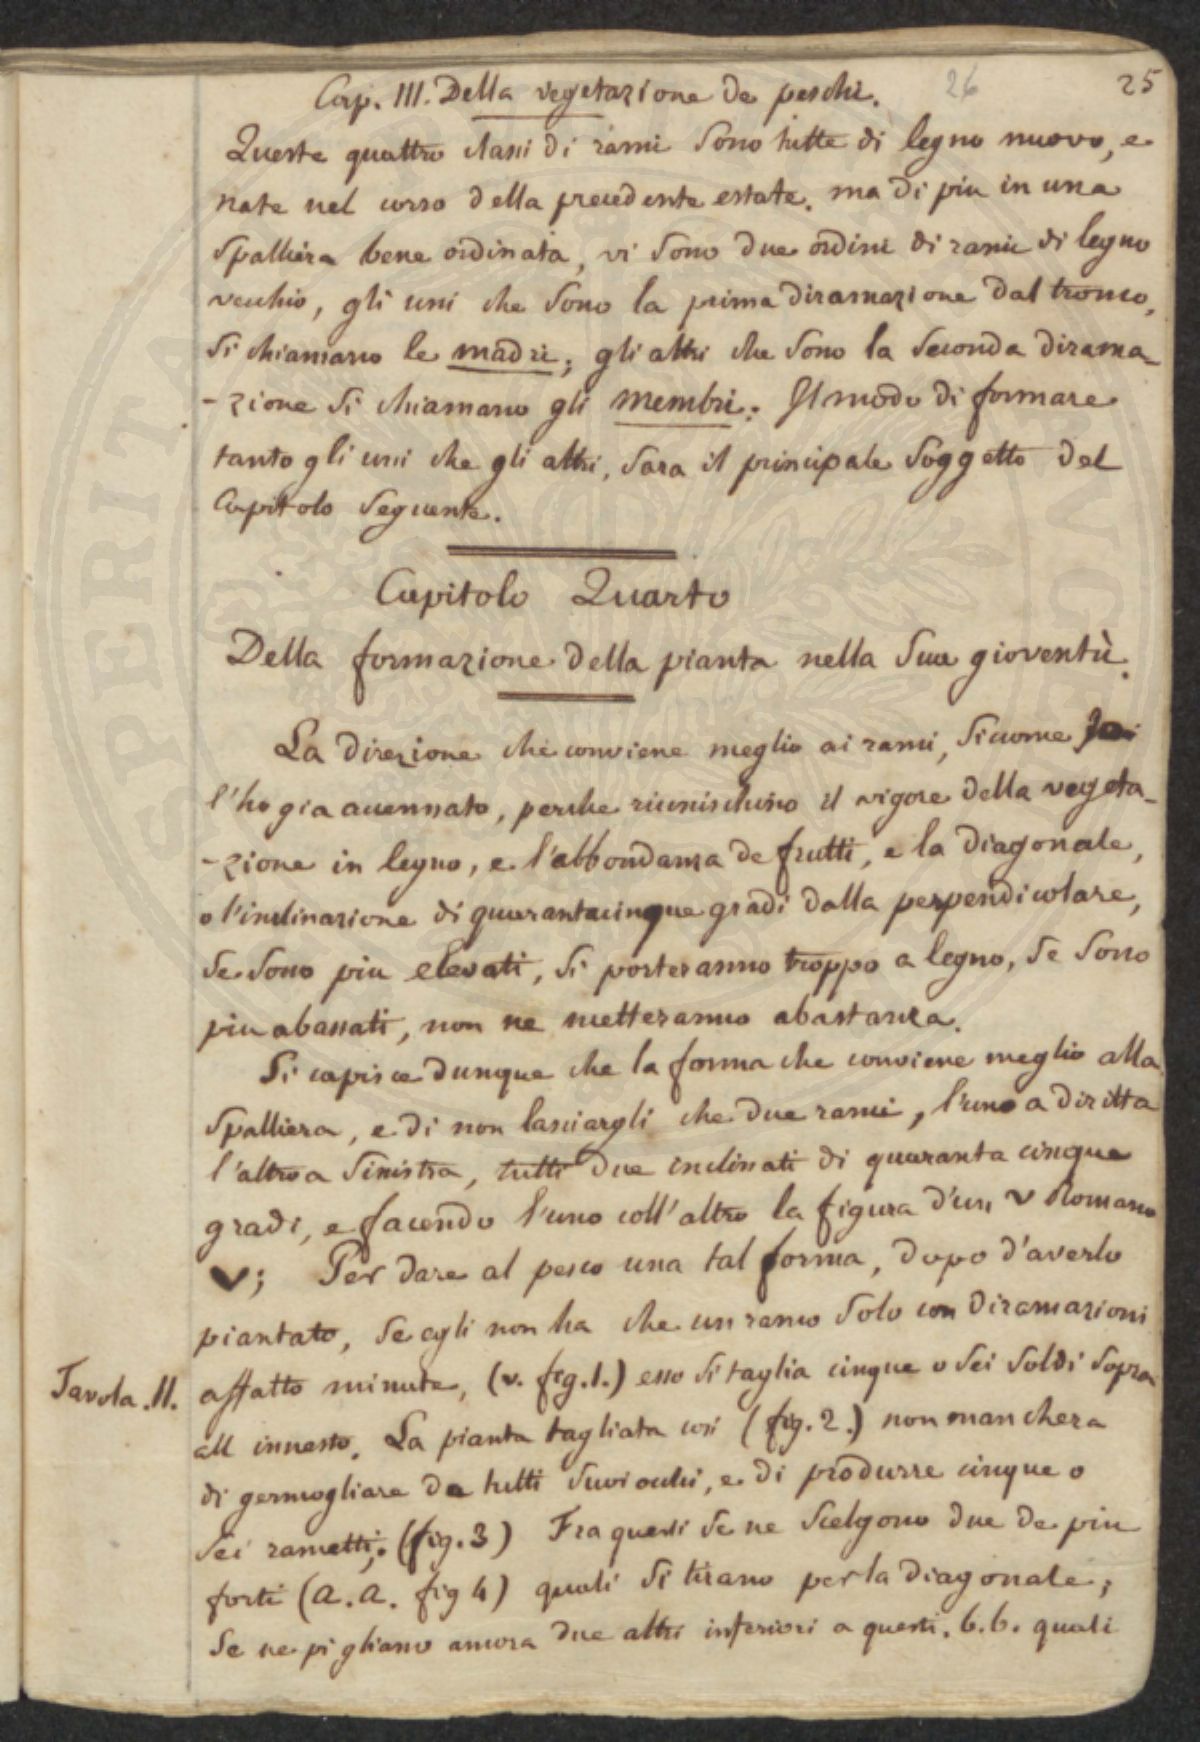 Cap. III. Della vegetazione de peschi.
26
25
Queste quattro classi di rami sono tutte di legno nuovo, e
nate nel corso della precedente estate. ma di piu in una
Spalliera bene ordinata, vi sono due ordini di rami di legno
vecchio, gli uni che sono la prima diramazione dal tronco,
si chiamano le madri; gli altri che sono la seconda dirama-
-zione si chiamano gli membri. Il modo di formare
tanto gli uni che gli altri, sara il principale soggetto del
Capitolo seguente.
Capitolo Quarto
Della formazione della pianta nella sua gioventù.
La direzione che conviene meglio ai rami, siccome
l'ho gia accennato, perche riunischino il vigore della vegeta-
-zione in legno, e l'abbondanza de frutti, e la diagonale,
o l'inclinazione di quarantacinque gradi dalla perpendicolare,
se sono piu elevati, si porteranno troppo a legno, se sono
piu abassati, non ne metteranno abastanza.
Si capisce dunque che la forma che conviene meglio alla
spalliera, e di non lasciargli che due rami, l'uno a diritta
l'altro a sinistra, tutti due inclinati di quaranta cinque
gradi, e facendo l'uno coll'altro la figura d'un V Romano
V; Per dare al pesco una tal forma, dopo d'averlo
piantato, se egli non ha che un ramo solo con diramazioni
Tavola. II. affatto minute, (v. fig. 1.) esso si taglia cinque o sei soldi sopra
all innesto. La pianta tagliata cosi (fig. 2.) non manchera
di germogliare da tutti suoi occhi, e di produrre cinque o
sei rametti; (fig. 3) Fra questi se ne scelgono due de piu
forti (a. a. fig 4) quali si tirano per la diagonale;
se ne pigliano ancora due altri inferiori a questi. b. b. quali